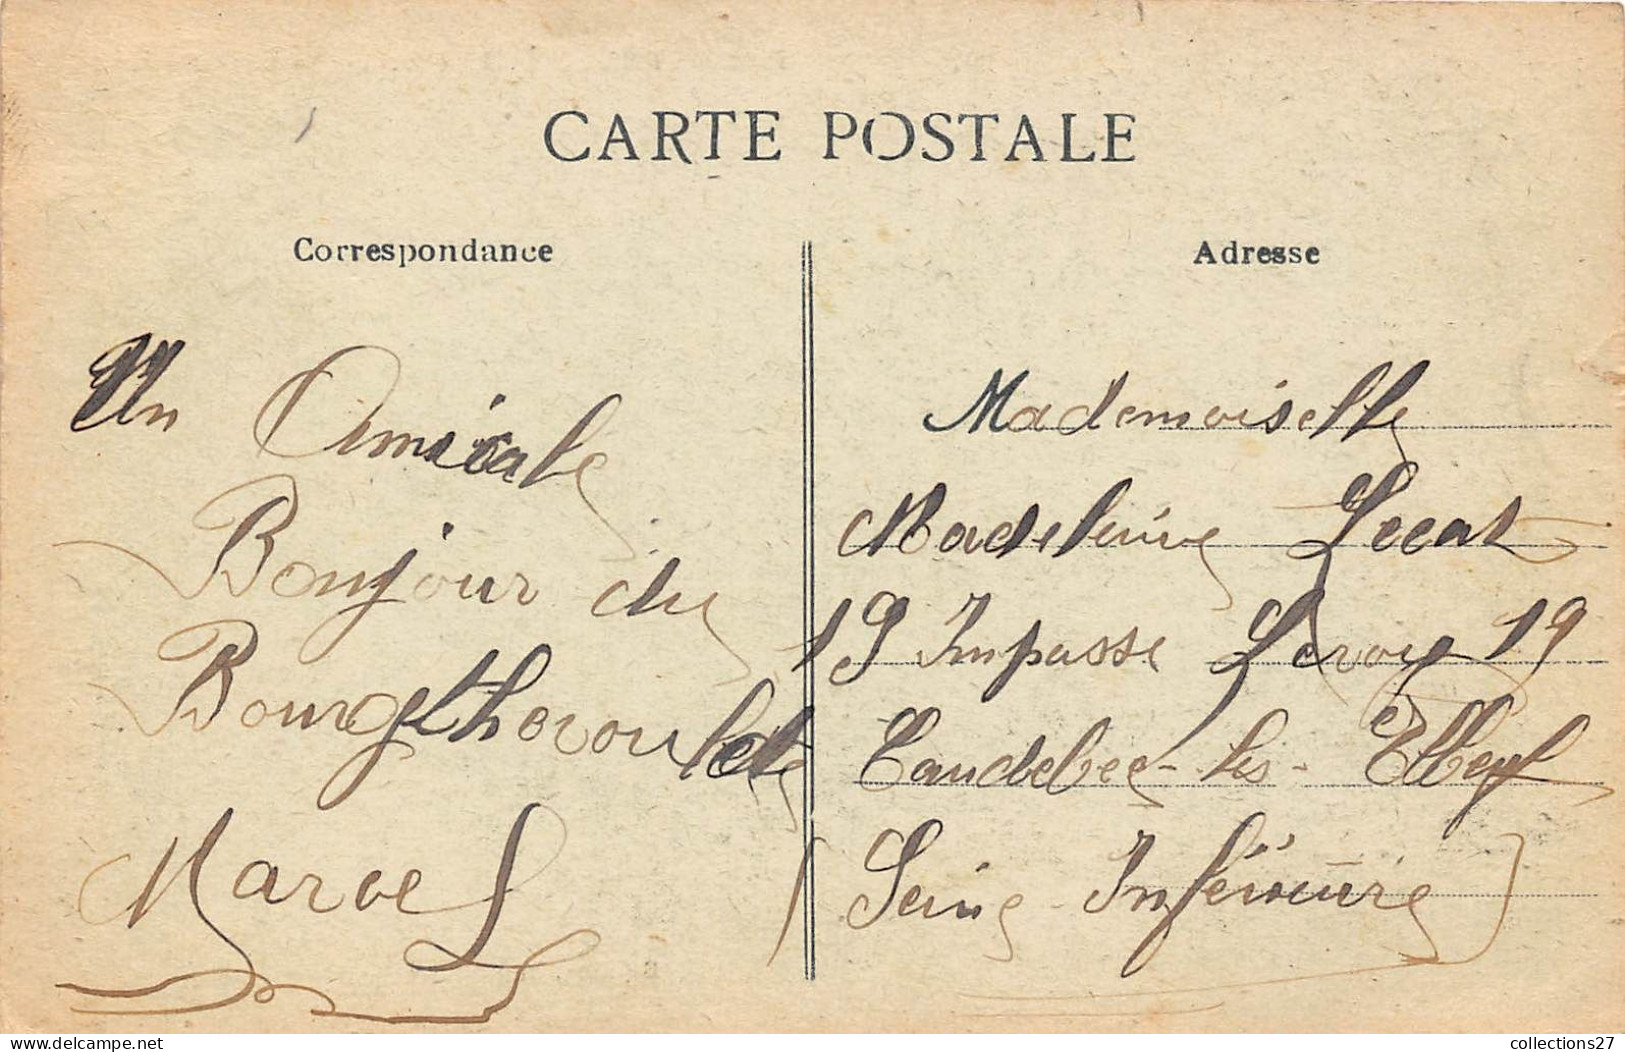 CARTE POSTALE
Correspondance
Un Amicale
Bonjour du
Bourgtheroulde
Marcel
Adresse
Mademoiselle
Madeleine Lecat
19 Impasse Leroy 19
Caudebec-les-Elbeuf
(Seine-Inférieure)
collections27